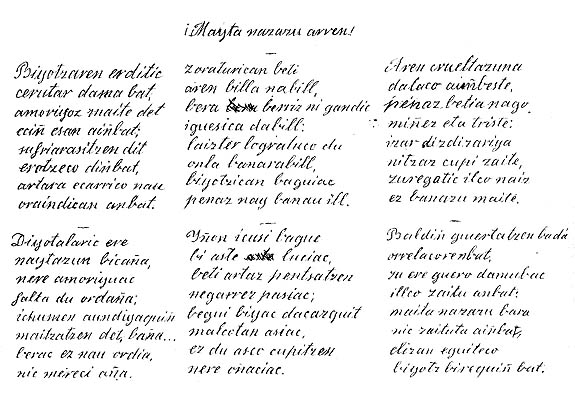 ¡Mayta nazazu arren!
Biyotzaren erditic
cerutar dama bat,
amorioz maite det
ecin esan ainbat;
sufriarasitzen dit
erotzeco dinbat,
artara ecarrico nau
oraindican anbat.
Diyotalaric ere
naytazun bicaña,
nere amoriyuac
falta du ordaña;
ichumen aundiyaquin
maitatzen det, baña...
berac ez nau ordia,
nic mereci aña.
zoraturican beti
aren billa nabill,
bera berriz ni gandic
iguesica dabill;
laister lograluco du
onla banarabill,
biyotzican baguiac
penaz nay banau ill.
Yñon icusi bague
bi aste luciac,
beti artaz pentsatzen
negarrez pasiac;
begui biyac dacazquit
malcotan asiac,
ez du asco cupitzen
nere onaciac.
Aren crueltazuna
dalaco aimbeste,
penaz betia nago
miñez eta triste;
izar dizdizariya
nitzaz cupi zaite,
zuregatic ilco naiz
ez banazu maite.
Baldin guertatzen bada
orrelacorenbat,
zu ere guero damubac
illco zaitu anbat;
maita nazazu bara
nic zaituta ainbat,
elizan eguiteco
biyotz birequin bat.